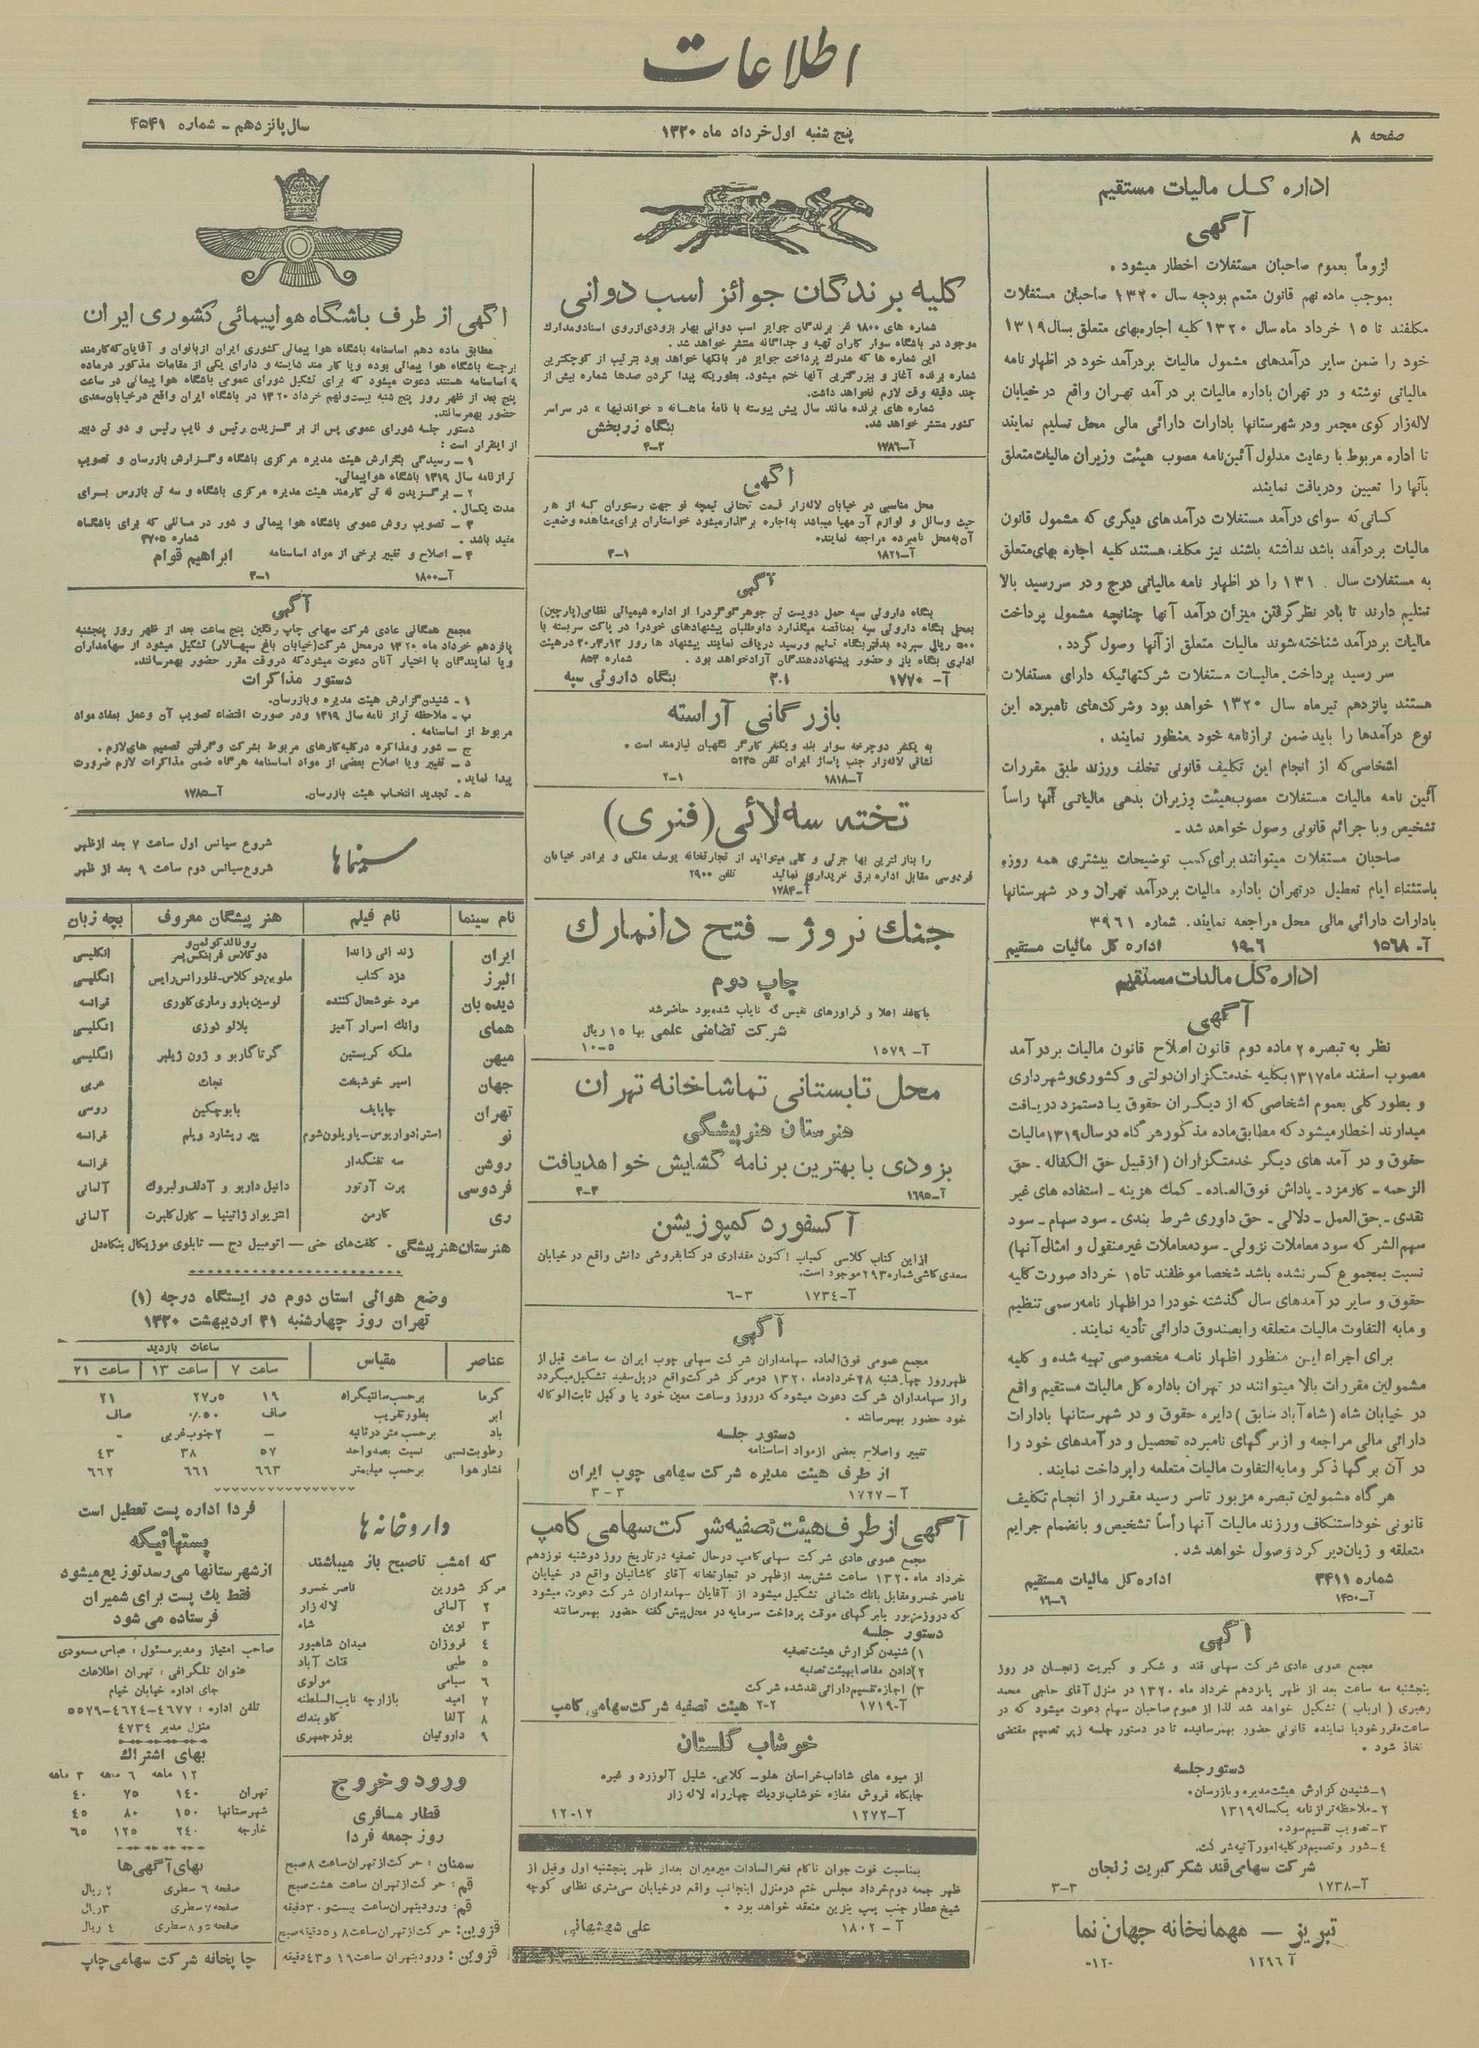 اطلاعات
صفحه ۸
پنج شنبه اول خرداد ماه ۱۳۲۰
سال پانزدهم - شماره ۴۵۴۱
اداره کل مالیات مستقیم
آگهی
لزوماً بعموم صاحبان مستغلات اخطار میشود .
بموجب ماده نهم قانون متمم بودجه سال ۱۳۲۰ صاحبان مستغلات
مکلفند تا ۱۵ خرداد ماه سال ۱۳۲۰ کلیه اجاره‌بهای متعلق بسال ۱۳۱۹
خود را ضمن سایر درآمدهای مشمول مالیات بردرآمد خود در اظهار نامه
مالیاتی نوشته و در تهران باداره مالیات بر درآمد تهران واقع در خیابان
لاله‌زار کوی مجمر ودر شهرستانها بادارات دارائی مالی محل تسلیم نمایند
تا اداره مربوط با رعایت مدلول آئین‌نامه مصوب هیئت وزیران مالیات متعلق
بآنها را تعیین ودریافت نمایند
کسانی که سوای درآمد مستغلات درآمدهای دیگری که مشمول قانون
مالیات بردرآمد باشد نداشته باشند نیز مکلف هستند کلیه اجاره بهای متعلق
به مستغلات سال ۱۳۱ را در اظهار نامه مالیاتی درج و در سررسید بالا
تسلیم دارند تا بادر نظر گرفتن میزان درآمد آنها چنانچه مشمول پرداخت
مالیات بردرآمد شناخته شوند مالیات متعلق از آنها وصول گردد .
سر رسید پرداخت مالیات مستغلات شرکتهائیکه دارای مستغلات
هستند پانزدهم تیرماه سال ۱۳۲۰ خواهد بود وشرکت‌های نامبرده این
نوع درآمدها را باید ضمن ترازنامه خود منظور نمایند .
اشخاصی که از انجام این تکلیف قانونی تخلف ورزند طبق مقررات
آئین نامه مالیات مستغلات مصوب هیئت وزیران بدهی مالیاتی آنها راساً
تشخیص وبا جرائم قانونی وصول خواهد شد -
صاحبان مستغلات میتوانند برای کسب توضیحات بیشتری همه روزه
باستثناء ایام تعطیل در تهران باداره مالیات بردرآمد تهران و در شهرستانها
بادارات دارائی مالی محل مراجعه نمایند. شماره ۳۹۶۱
آ- ۱۵۶۸ ۶-۱۹ اداره کل مالیات مستقیم
اداره کل مالیات مستقیم
آگهی
نظر به تبصره ۲ ماده دوم قانون اصلاح قانون مالیات بردرآمد
مصوب اسفند ماه ۱۳۱۷ بکلیه خدمتگزاران دولتی و کشوری و شهرداری
و بطور کلی بعموم اشخاصی که از دیگران حقوق یا دستمزد دریافت
میدارند اخطار میشود که مطابق ماده مذکور هرگاه در سال ۱۳۱۹ مالیات
حقوق و درآمد های دیگر خدمتگزاران (از قبیل حق الکفاله - حق
الزحمه - کارمزد - پاداش فوق‌العاده - کمک هزینه - استفاده های غیر
نقدی - حق‌العمل - دلالی - حق داوری شرط بندی - سود سهام - سود
سهم‌الشرکه سود معاملات نزولی - سود معاملات غیرمنقول و امثال آنها)
نسبت بمجموع کسر نشده باشد شخصا موظفند تا ۱۵ خرداد صورت کلیه
حقوق و سایر درآمدهای سال گذشته خودرا در اظهار نامه رسمی تنظیم
و مابه التفاوت مالیات متعلقه را بصندوق دارائی تأدیه نمایند .
برای اجراء این منظور اظهار نامه مخصوصی تهیه شده و کلیه
مشمولین مقررات بالا میتوانند در تهران باداره کل مالیات مستقیم واقع
در خیابان شاه (شاه آباد سابق) دایره حقوق و در شهرستانها بادارات
دارائی مالی مراجعه و از برگهای نامبرده تحصیل و درآمدهای خود را
در آن برگها ذکر و مابه‌التفاوت مالیات متعلقه را پرداخت نمایند .
هرگاه مشمولین تبصره مزبور تاسر رسید مقرر از انجام تکلیف
قانونی خود استنکاف ورزند مالیات آنها رأساً تشخیص و بانضمام جرایم
متعلقه و زیان دیرکرد وصول خواهد شد .
شماره ۳۴۱۱ اداره کل مالیات مستقیم
آ-۱۴۵۰ ۶-۱۶
آگهی
مجمع عمومی عادی شرکت سهامی قند و شکر و کبریت زنجان در روز
پنجشنبه سه ساعت بعد از ظهر پانزدهم خرداد ماه ۱۳۲۰ در منزل آقای حاجی محمد
رهبری (ارباب) تشکیل خواهد شد لذا از عموم صاحبان سهام دعوت میشود که در
ساعت مقرر خود یا نماینده قانونی حضور بهمرسانیده تا در دستور جلسه زیر تصمیم مقتضی
اتخاذ شود .
دستور جلسه
۱- شنیدن گزارش هیئت مدیره و بازرسان .
۲- ملاحظه ترازنامه یکساله ۱۳۱۹
۳- تصویب تقسیم سود .
۴- شور و تصمیم در کلیه امور آتیه شرکت .
شرکت سهامی قند شکر کبریت زنجان
آ-۱۷۳۸ ۳-۳
تبریز - مهمانخانه جهان نما
آ ۱۲۹۶ ۱۲-
کلیه برندگان جوائز اسب دوانی
شماره های ۱۸۰۰ نفر برندگان جوایز اسب دوانی بهار بزودی ازروی اسناد ومدارک
موجود در باشگاه سوار کاران تهیه و جداگانه منتشر خواهد شد .
این شماره ها که مدرک پرداخت جوایز در بانکها خواهد بود بترتیب از کوچکترین
شماره برنده آغاز و ببزرگترین آنها ختم میشود. بطوریکه پیدا کردن صدها شماره بیش از
چند دقیقه وقت لازم نخواهد داشت.
شماره های برنده مانند سال پیش پیوسته با نامهٔ ماهانه «خواندنیها» در سراسر
کشور منتشر خواهد شد. بنگاه زربخش
آ-۱۷۸۶ ۲-۴
آگهی
محل مناسبی در خیابان لاله‌زار قسمت تحتانی تیمچه نو جهت رستوران که از هر
حیث وسائل و لوازم آن مهیا میباشد به‌اجاره برگذار میشود خواستاران برای مشاهده وضعیت
آن به‌محل نامبرده مراجعه نمایند.
آ-۱۸۲۱ ۱-۳
آگهی
بنگاه داروئی سپه حمل دویست تن جوهر گوگرد را از اداره شیمیائی نظامی (پارچین)
بمحل بنگاه داروئی سپه بمناقصه میگذارد داوطلبان پیشنهادهای خودرا در پاکت سربسته با
۵۰۰ ریالی سپرده بدفتر بنگاه تسلیم ورسید دریافت نمایند پیشنهاد ها روز ۱۲ر۳ر۲۰ در هیئت
اداری بنگاه باز و حضور پیشنهاد دهندگان آزاد خواهد بود . شماره ۸۵۳
آ- ۱۷۷۰ ۱-۳ بنگاه داروئی سپه
بازرگانی آراسته
به یکنفر دوچرخه سوار بلد و یکنفر کارگر نگهبان نیازمند است .
نشانی لاله‌زار جنب پاساژ ایران تلفن ۵۲۴۵
آ-۱۸۱۸ ۱-۲
تخته سه‌لائی (فنری)
را بنازلترین بها جزئی و کلی میتوانید از تجارتخانه یوسف ملکی و برادر خیابان
فردوسی مقابل اداره برق خریداری نمائید تلفن ۲۹۰۰
آ-۱۷۸۴
جنگ نروژ - فتح دانمارک
چاپ دوم
باکاغذ اعلا و گراورهای نفیس که نایاب شده‌بود حاضر شد
شرکت تضامنی علمی بها ۱۵ ریال
آ- ۱۵۷۹ ۵-۱۰
محل تابستانی تماشاخانه تهران
هنرستان هنرپیشگی
بزودی با بهترین برنامه گشایش خواهد یافت
آ-۱۶۹۵ ۳-۳
آکسفورد کمپوزیشن
از این کتاب کلاسی کمیاب اکنون مقداری در کتابفروشی دانش واقع در خیابان
سعدی کاشی شماره ۲۹۳ موجود است.
آ-۱۷۳۴ ۳-۶
آگهی
مجمع عمومی فوق‌العاده سهامداران شرکت سهامی چوب ایران سه ساعت قبل از
ظهر روز چهارشنبه ۲۸ خرداد ماه ۱۳۲۰ در مرکز شرکت واقع در پل سفید تشکیل میگردد
واز سهامداران شرکت دعوت میشود که در روز وساعت معین خود یا و کیل ثابت‌الوکاله
خود حضور بهمرسانند .
دستور جلسه
تغییر و اصلاح بعضی از مواد اساسنامه
از طرف هیئت مدیره شرکت سهامی چوب ایران
آ-۱۷۲۷ ۳-۳
آگهی از طرف هیئت تصفیه شرکت سهامی کامپ
مجمع عمومی عادی شرکت سهامی کامپ درحال تصفیه در تاریخ روز دوشنبه نوزدهم
خرداد ماه ۱۳۲۰ ساعت شش بعد ازظهر در تجارتخانه آقای کاشانیان واقع در خیابان
ناصر خسرو مقابل بانک عثمانی تشکیل میشود از آقایان سهامداران شرکت دعوت میشود
که در روز مزبور با برگهای موقت پرداخت سرمایه در محل پیش گفته حضور بهمرسانند
دستور جلسه
۱) شنیدن گزارش هیئت تصفیه
۲) دادن مفاصا بهیئت تصفیه
۳) اجازه تقسیم دارائی نقد شده شرکت
آ-۱۷۱۹ ۲-۲ هیئت تصفیه شرکت سهامی کامپ
خوشاب گلستان
از میوه های شاداب خراسان هلو - گلابی. شلیل آلوزرد و غیره
جایگاه فروش مغازه خوشاب نزدیک چهارراه لاله زار
آ-۱۲۷۲ ۱۲-۱۲
بمناسبت فوت جوان ناکام فخرالسادات میرمیران بعداز ظهر پنجشنبه اول وقبل از
ظهر جمعه دوم خرداد مجلس ختم در منزل اینجانب واقع در خیابان سی متری نظامی کوچه
شیخ عطار جنب پمپ بنزین منعقد خواهد بود .
آ - ۱۸۰۲ علی شهشهانی
آگهی از طرف باشگاه هواپیمائی کشوری ایران
مطابق ماده دهم اساسنامه باشگاه هوا پیمائی کشوری ایران ازبانوان و آقایان که کارمند
برجسته باشگاه هوا پیمائی بوده ویا کارمند شایسته و دارای یکی از مقامات مذکور درماده
۹ اساسنامه هستند دعوت میشود که برای تشکیل شورای عمومی باشگاه هوا پیمائی در ساعت
پنج بعد از ظهر روز پنج شنبه بیست‌ونهم خرداد ۱۳۲۰ در باشگاه ایران واقع درخیابان سعدی
حضور بهمرسانند.
دستور جلسه شورای عمومی پس از برگزیدن رئیس و نایب رئیس و دو تن دبیر
از اینقرار است :
۱ - رسیدگی بگزارش هیئت مدیره مرکزی باشگاه وگزارش بازرسان و تصویب
ترازنامه سال ۱۳۱۹ باشگاه هواپیمائی.
۲ - برگزیدن نه تن کارمند هیئت مدیره مرکزی باشگاه و سه تن بازرس برای
مدت یکسال.
۳ - تصویب روش عمومی باشگاه هوا پیمائی و شور در مسائلی که برای باشگاه
مفید باشد . شماره ۳۷۰۵
۴ - اصلاح و تغییر برخی از مواد اساسنامه ابراهیم قوام
آ-۱۸۰۰ ۱-۳
آگهی
مجمع همگانی عادی شرکت سهامی چاپ رنگین پنج ساعت بعد از ظهر روز پنجشنبه
پانزدهم خرداد ماه ۱۳۲۰ درمحل شرکت (خیابان باغ سپهسالار) تشکیل میشود از سهامداران
ویا نمایندگان با اختیار آنان دعوت میشود که دروقت مقرر حضور بهمرسانند.
دستور مذاکرات
۱ - شنیدن گزارش هیئت مدیره وبازرسان.
ب - ملاحظه تراز نامه سال ۱۳۱۹ ودر صورت اقتضاء تصویب آن وعمل بمفاد مواد
مربوط از اساسنامه .
ج - شور ومذاکره درکلیه‌کارهای مربوط بشرکت وگرفتن تصمیم های لازم .
د - تغییر ویا اصلاح بعضی از مواد اساسنامه هرگاه ضمن مذاکرات لازم ضرورت
پیدا نماید.
ه - تجدید انتخاب هیئت بازرسان. آ-۱۷۸۵
سینماها
شروع سیانس اول ساعت ۷ بعد ازظهر
شروع سیانس دوم ساعت ۹ بعد از ظهر
نام سینما نام فیلم هنرپیشگان معروف بچه زبان
ایران زندانی زاندا رونالدکولمن و دوگلاس فربنکس‌پسر انگلیسی
البرز دزد کتاب ملوین‌دوکلاس-فلورانس‌رایس انگلیسی
دیده‌بان مرد خوشحال کننده لوسین بارو وماری کلوری فرانسه
همای وانک اسرار آمیز بلالو گوزی انگلیسی
میهن ملکه کریستین گرتاگاربو و ژون ژیلبر انگلیسی
جهان اسیر خوشبخت نجات عربی
تهران چاپایف بابوچکین روسی
نو استرادواریوس-باریلون‌شوم پیر ریشارد ویلم فرانسه
روشن سه تفنگدار فرانسه
فردوسی پرت آرتور دانیل داریو و آدلف ولبروک آلمانی
ری کارمن آلمانی
هنرستان هنرپیشگی . کلفت‌های حنی - اتومبیل دج - تابلوی موزیکال بنگاه دل
وضع هوائی استان دوم در ایستگاه درجه (۱)
تهران روز چهارشنبه ۳۱ اردیبهشت ۱۳۲۰
عناصر مقیاس ساعات بازدید
ساعت ۷ ساعت ۱۳ ساعت ۲۱
گرما برحسب سانتیگراد ۱۹ ۲۷ر۵ ۲۱
ابر بطور تقریب صاف ۵۰٪ صاف
باد برحسب متر درثانیه - ۲ جنوب غربی -
رطوبت نسبی نسبت بصدواحد ۵۷ ۳۸ ۴۳
فشار هوا برحسب میلیمتر ۶۶۳ ۶۶۱ ۶۶۲
داروخانه‌ها
که امشب تاصبح باز میباشند
مرکز شورین ناصر خسرو
۲ آلمانی لاله زار
۳ نوین شاه
۴ فروزان میدان شاهپور
۵ طبی قنات آباد
۶ سیامی مولوی
۷ امید بازارچه نایب‌السلطنه
۸ آلفا گلوبندک
۹ داروئیان بوذرجمهری
ورود و خروج
قطار مسافری
روز جمعه فردا
سمنان : حرکت از تهران ساعت ۸ صبح
قم : حرکت از تهران ساعت هشت صبح
قم : ورود بتهران ساعت بیست و ۳۰ دقیقه
قزوین : حرکت از تهران ساعت ۸ و ۵ دقیقه صبح
قزوین : ورود بتهران ساعت ۱۹ و ۴۳ دقیقه
فردا اداره پست تعطیل است
پستهائیکه
از شهرستانها می‌رسد توزیع میشود
فقط یک پست برای شمیران
فرستاده می شود
صاحب امتیاز و مدیر مسئول : عباس مسعودی
عنوان تلگرافی : تهران اطلاعات
جای اداره خیابان خیام
تلفن اداره : ۴۶۷۷-۴۶۲۴-۵۵۷۹
منزل مدیر ۴۷۳۴
بهای اشتراک
۱۲ ماهه ۶ ماهه ۳ ماهه
تهران ۱۴۰ ۷۵ ۴۰
شهرستانها ۱۵۰ ۸۰ ۴۵
خارجه ۲۴۰ ۱۲۵ ۶۵
بهای آگهی‌ها
صفحه ۶ سطری ۲ ریال
صفحه ۷ سطری ۳ ریال
صفحه ۵ و ۸ سطری ۴ ریال
چاپخانه شرکت سهامی چاپ